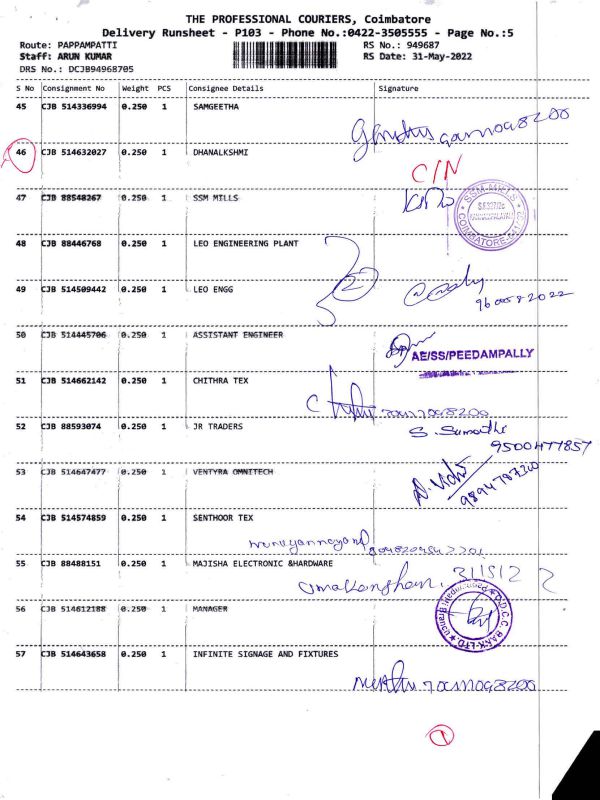 THE PROFESSIONAL COURIERS, Coimbatore
Delivery Runsheet - P103 - Phone No.:0422-3505555 - Page No.:5
Route: PAPPAMPATTI RS No.: 949687
Staff: ARUN KUMAR RS Date: 31-May-2022
DRS No.: DCJB94968705
S No Consignment No Weight PCS Consignee Details Signature
45 CJB 514336994 0.250 1 SAMGEETHA
46 CJB 514632027 0.250 1 DHANALKSHMI
C/N
47 CJB 88548267 0.250 1 SSM MILLS
48 CJB 88446768 0.250 1 LEO ENGINEERING PLANT
49 CJB 514509442 0.250 1 LEO ENGG
9600582022
50 CJB 514445706 0.250 1 ASSISTANT ENGINEER
AE/SS/PEEDAMPALLY
51 CJB 514662142 0.250 1 CHITHRA TEX
52 CJB 88593074 0.250 1 JR TRADERS
S. Sumathi
9500477857
53 CJB 514647477 0.250 1 VENTYRA OMNITECH
9894787220
54 CJB 514574859 0.250 1 SENTHOOR TEX
55 CJB 88488151 0.250 1 MAJISHA ELECTRONIC &HARDWARE
56 CJB 514612188 0.250 1 MANAGER
57 CJB 514643658 0.250 1 INFINITE SIGNAGE AND FIXTURES